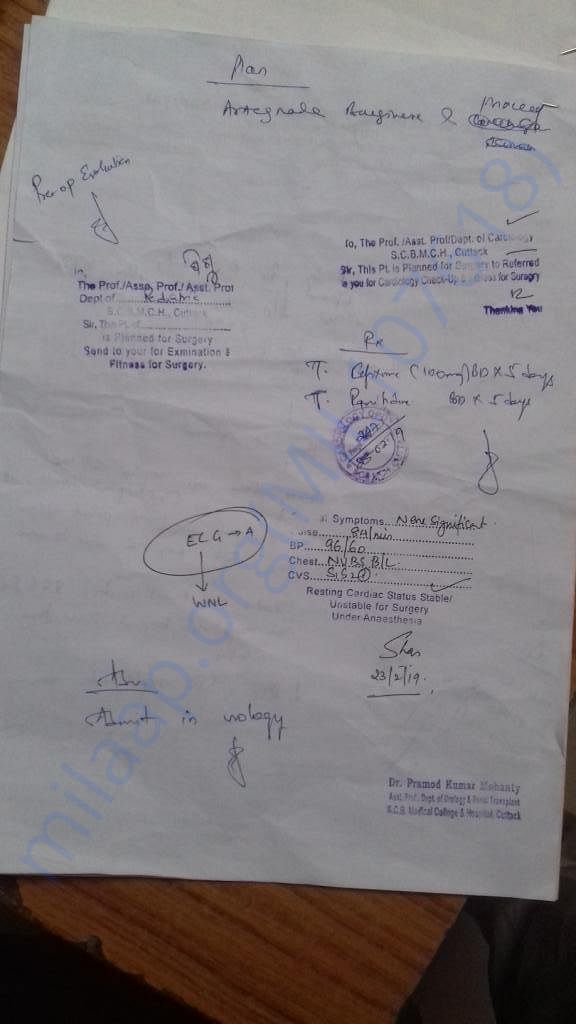 Plan
&
Proceed
Pre op Evaluation
To, The Prof. /Asst. Prof/Dept. of Cardiology
S.C.B.M.C.H., Cuttack
Sir, This Pt. is Planned for Surgery to Referred
for Surgery
Thanking You
The Prof./Assp, Prof./ Asst. Prof
Dept of
S.C.B.M.C.H., Cuttack
Sir, This Pt. of
is Planned for Surgery
Send to your for Exmination &
Fitness for Surgery.
Rx
T. Cefixime (100mg) BD x 5 days
T. BD x 5 days
Symptoms... Non Significant
84/min
BP... 96/60
Chest... NVBS B/L
CVS... S1S2
Resting Cardiac Status Stable/
Unstable for Surgery
Under Anaesthesia
ECG → A
WNL
23/2/19.
Adv
Admit in urology
Dr. Pramod Kumar Mohanty
Asst. Prof., Dept. of Urology & Renal Transplant
S.C.B. Medical College & Hospital, Cuttack